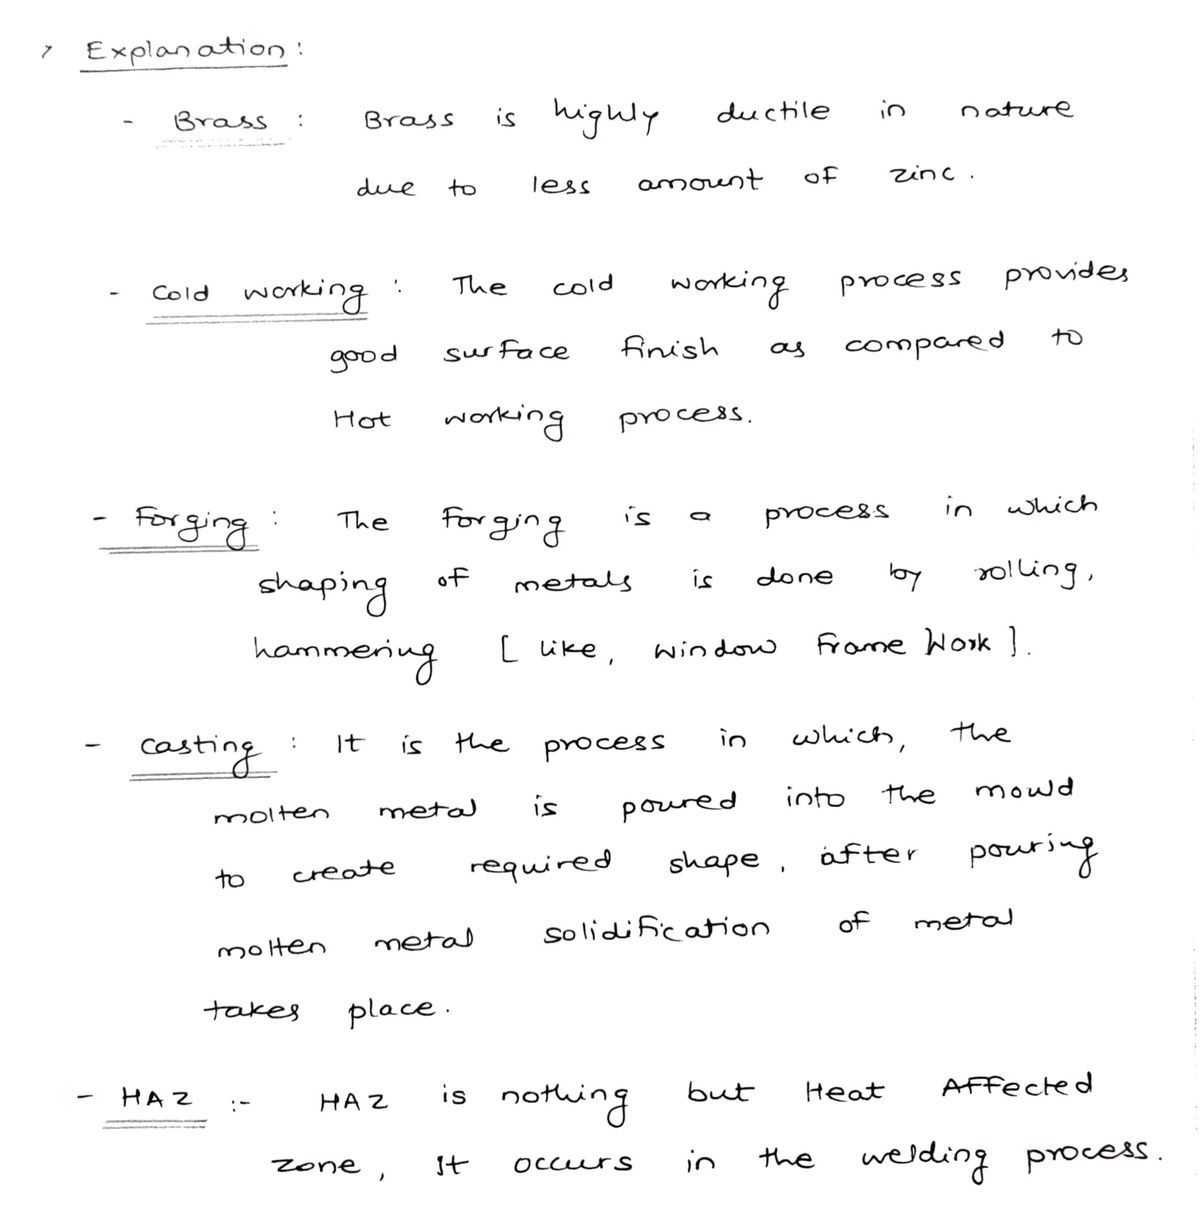 Explanation:
- Brass : Brass is highly ductile in nature
due to less amount of zinc.
- Cold working : The cold working process provides
good surface finish as compared to
Hot working process.
- Forging : The forging is a process in which
shaping of metals is done by rolling,
hammering [ like, window Frame Work ].
- casting : It is the process in which, the
molten metal is poured into the mould
to create required shape, after pouring
molten metal solidification of metal
takes place.
- HAZ :- HAZ is nothing but Heat Affected
zone, It occurs in the welding process.